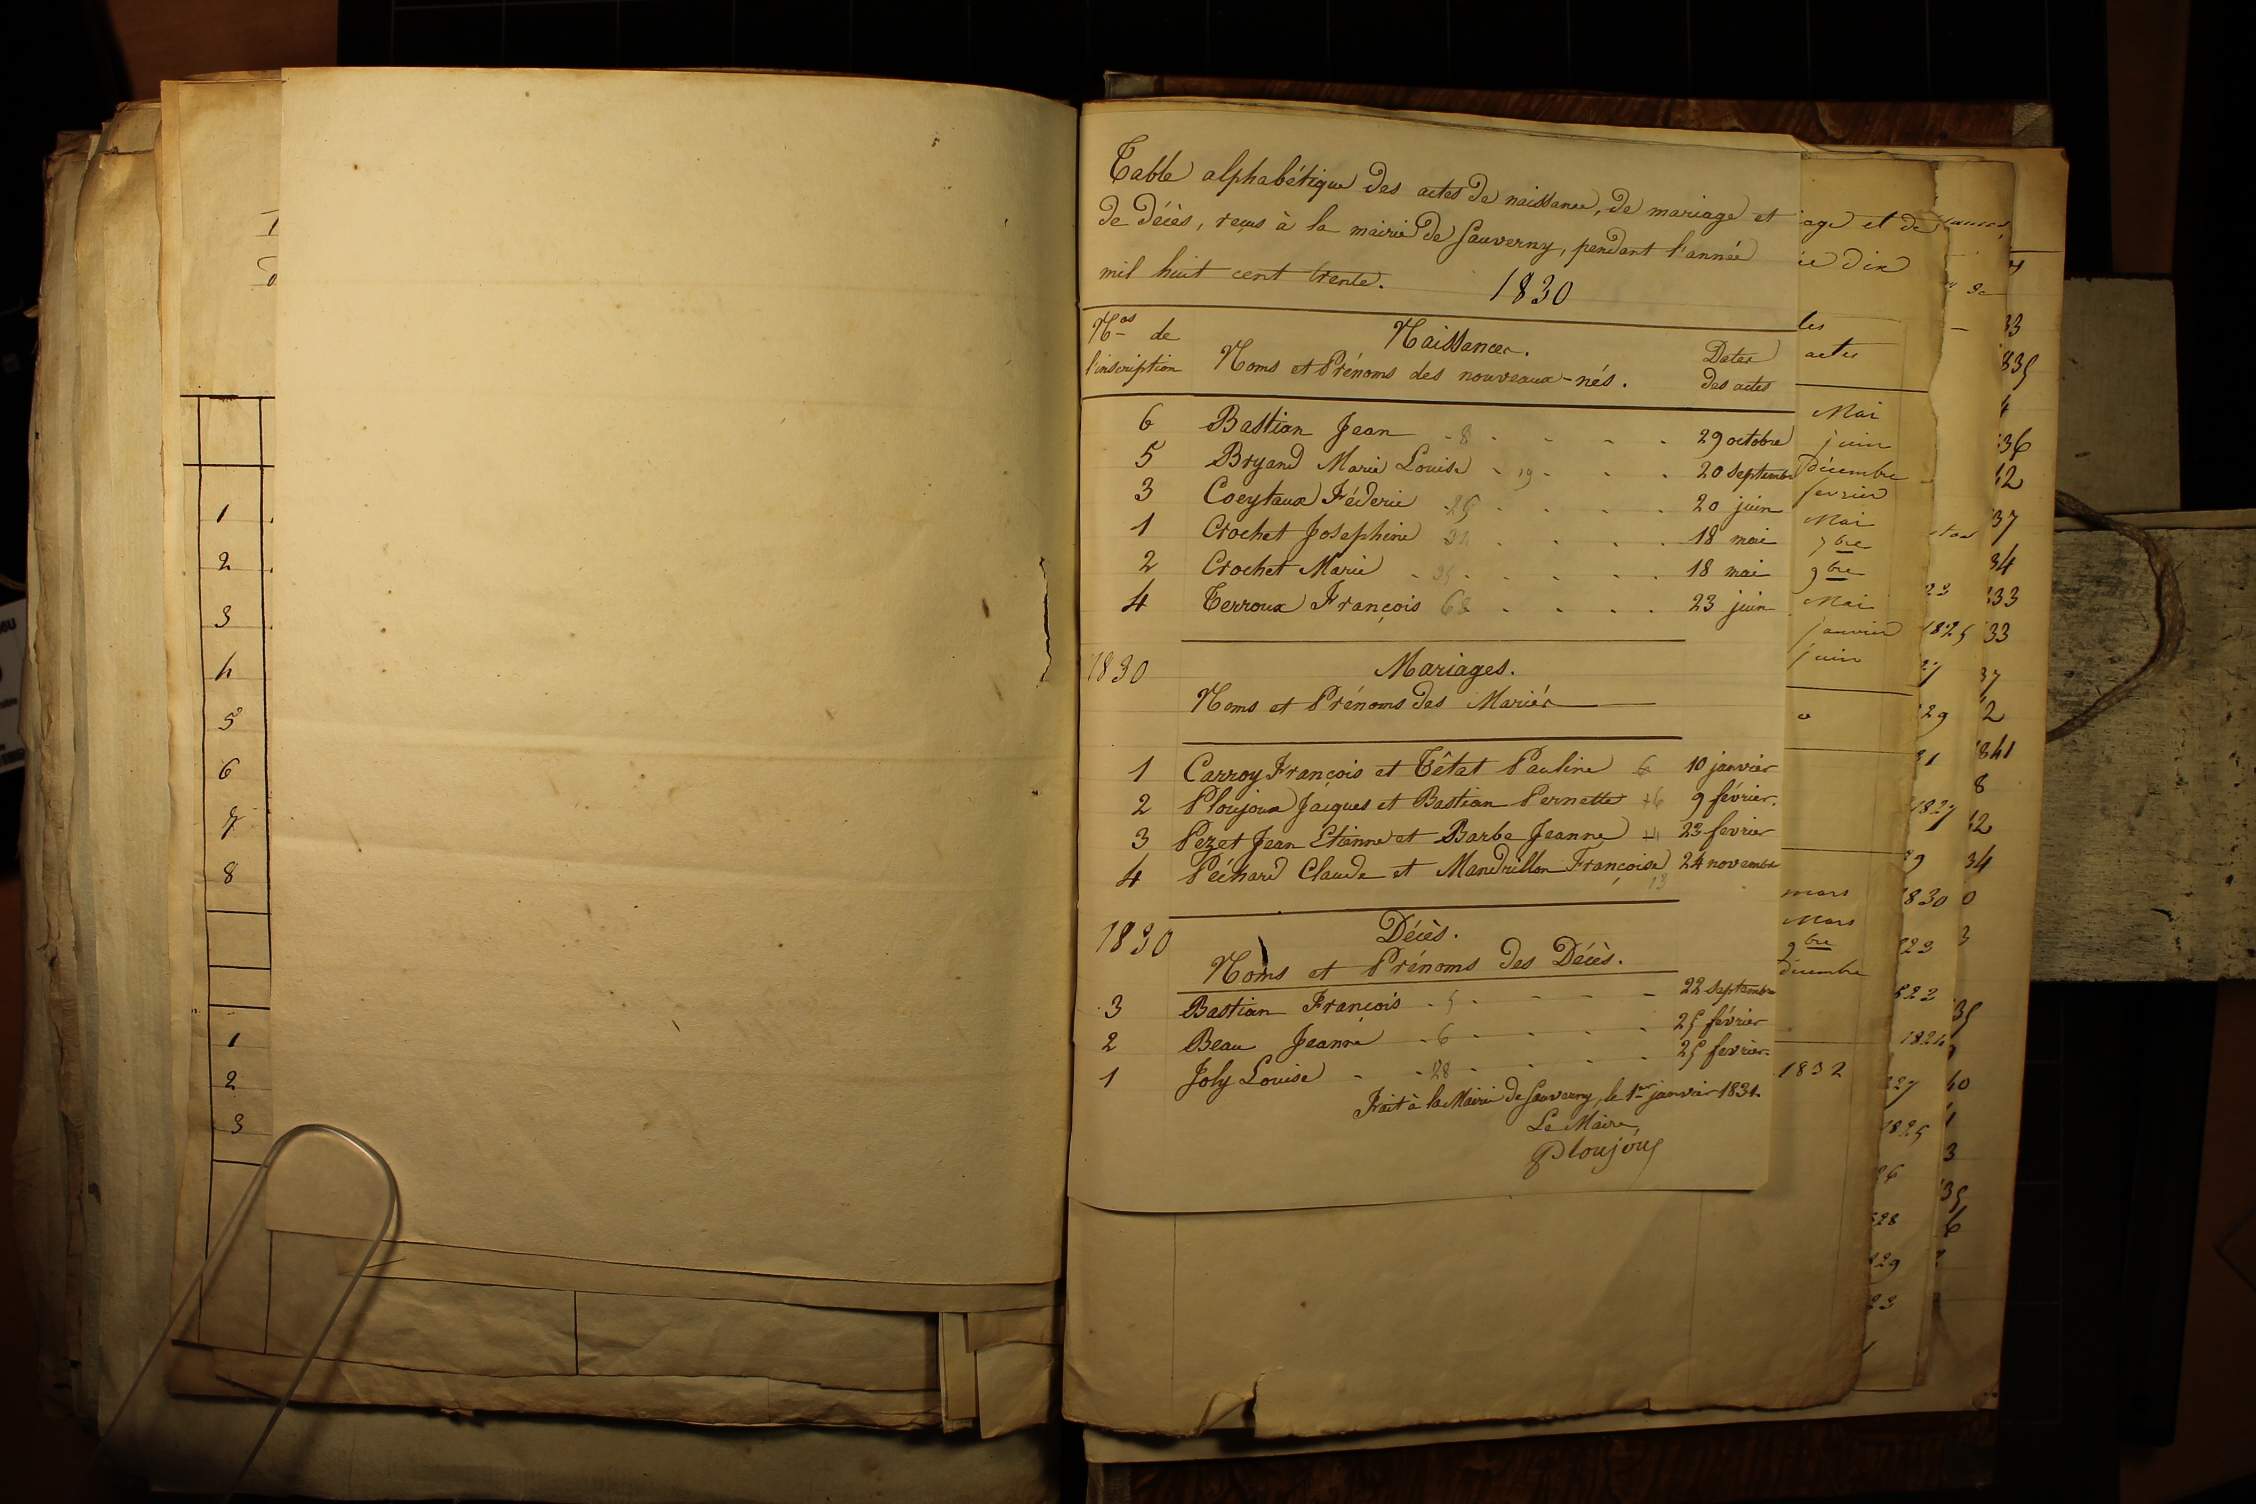 Table alphabétique des actes de naissance, de mariage et
de décès, reçus à la mairie de Sauverny, pendant l'année
mil huit cent trente. 1830
Nos de l'inscription
Naissances.
Noms et Prénoms des nouveaux-nés.
Dates des actes
6 Bastian Jean - 8 - - - - 29 octobre
5 Bryand Marie Louise - 19 - - - 20 septembre
3 Coeytaux Féderic 25 - - - - 20 juin
1 Crochet Josephine 31 - - - 18 mai
2 Crochet Marie - 31 - - - - 18 mai
4 Terroux François 68 - - - - 23 juin
1830 Mariages.
Noms et Prénoms des Mariés
1 Carroy François et Têtat Pauline 6 10 janvier
2 Ploujoux Jacques et Bastian Pernette 46 9 février.
3 Pezet Jean Etienne et Barbe Jeanne 41 23 fevrier
4 Péchard Claude et Mandrillon Françoise 24 novembre
13
1830 Décès.
Noms et Prénoms des Décès.
3 Bastian François - 5 - - - - 22 septembre
2 Beau Jeanne - 6 - - - - 25 février
1 Joly Louise - - 28 - - - - 25 fevrier.
Fait à la Mairie de Sauverny, le 1er janvier 1831.
Le Maire,
Ploujoux
1
2
3
4
5
6
7
8
1
2
3
age et de
ie dix
les
actes
Mai
juin
décembre
fevrier
Mai
7bre
9bre
Mai
janvier
juin
mars
Mars
9bre
décembre
1832
23
1825
27
29
31
1827
29
1830
123
822
1824
827
1825
26
828
829
23
33
835
4
36
42
37
34
833
33
37
2
1841
8
42
34
0
3
35
40
1
3
35
6